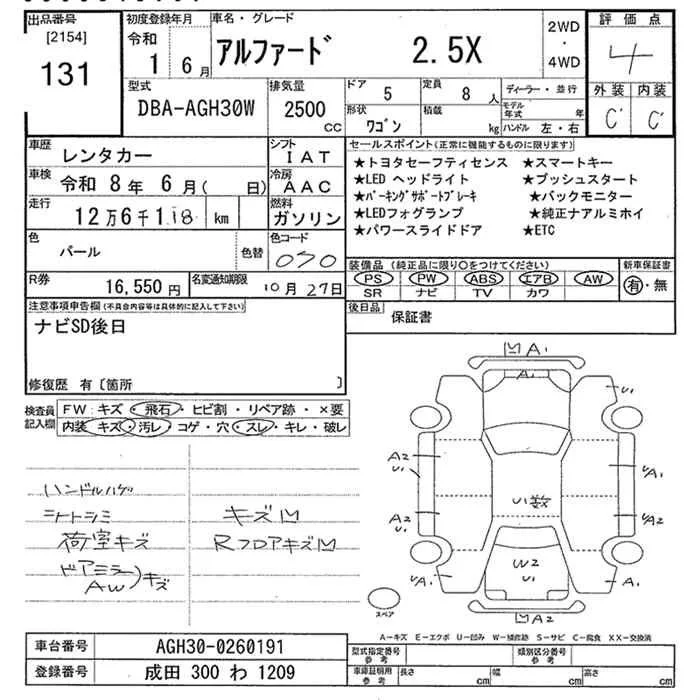 出品番号
[2154]
131
初度登録年月
令和
1 6 月
車名・グレード
アルファード 2.5X
2WD
・
4WD
評価点
4
外装 内装
C' C'
型式
DBA-AGH30W
排気量
2500
cc
ドア
5
定員
8 人
形状
ワゴン
積載
kg
ディーラー・並行
モデル年式 年
ハンドル 左・右
車歴
レンタカー
シフト
IAT
車検
令和 8 年 6 月( 日)
冷房
AAC
走行
12万6千118 km
燃料
ガソリン
色
パール
色替
色コード
070
R券
16,550 円
名変通知期限
10 月 27 日
セールスポイント(正常に機能するものに限ります)
★トヨタセーフティセンス ★スマートキー
★LED ヘッドライト ★プッシュスタート
★パーキングサポートブレーキ ★バックモニター
★LEDフォグランプ ★純正ナアルミホイ
★パワースライドドア ★ETC
装備品(純正品に限り○をつけてください)
PS PW ABS エアB AW
SR ナビ TV カワ
新車保証書
有・無
注意事項申告欄(不具合内容等は具体的に記入して下さい)
ナビSD後日
修復歴 有〔箇所 〕
後日品
保証書
検査員
記入欄
FW:キズ・飛石・ヒビ割・リペア跡・×要
内装 キズ・汚レ・コゲ・穴・スレ・キレ・破レ
ハンドルハゲ
シートシミ
荷室キズ
ドアミラー
AW
キズ
キズ凹
Rフロアキズ凹
凹 A1
A1
U1
A2
U1
UA1
A2
U1
UA2
U数
W2
U1
UA1
UA1
凹A2
スペア
A-キズ E-エクボ U-凹み W-補修跡 S-サビ C-腐食 XX-交換済
車台番号
AGH30-0260191
登録番号
成田 300 わ 1209
型式指定番号
参考
類別区分番号
参考
車庫証明用
参考
長さ cm
幅 cm
高さ cm